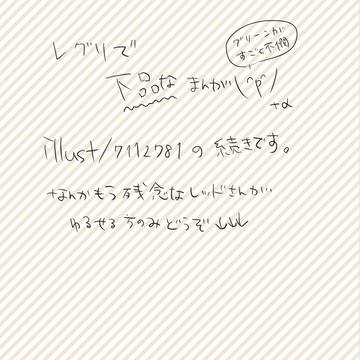 レグリで
グリーンが
すごく不憫
下品な まんが(^p^)
+α
illust/7112781の続きです。
なんかもう残念なレッドさんが
ゆるせる方のみどうぞ↓↓↓